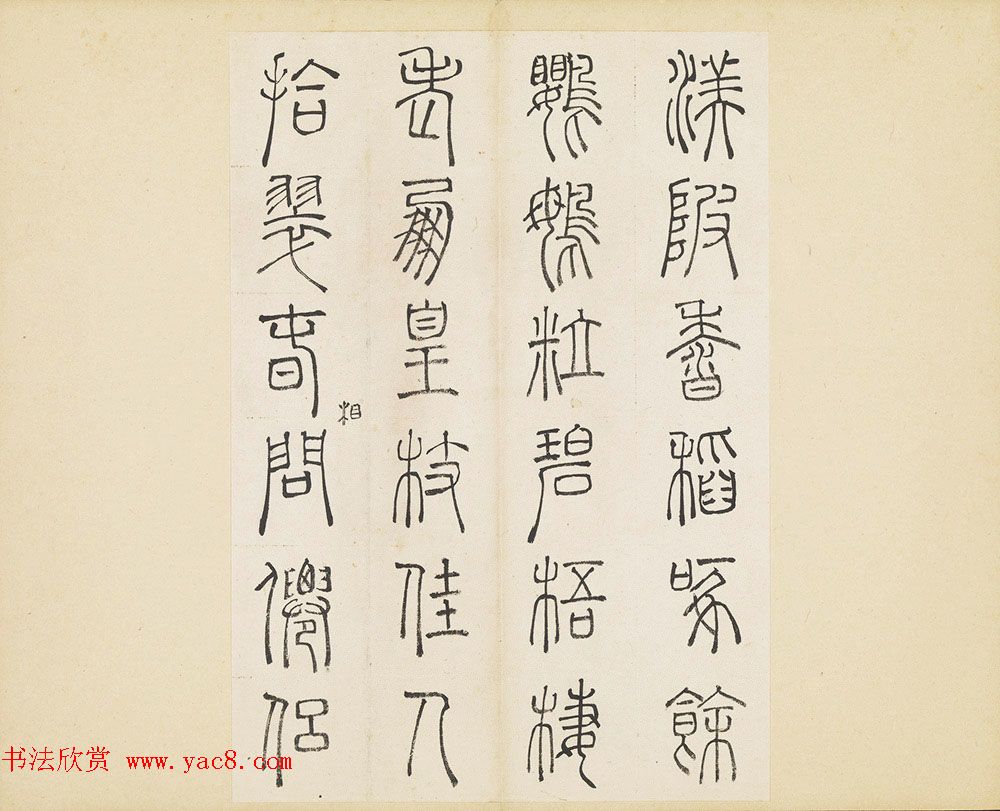 渼陂香稻啄餘
鸚䳇粒碧梧棲
老鳳皇枝佳人
拾翠春相問僊侶
书法欣赏 www.yac8.com